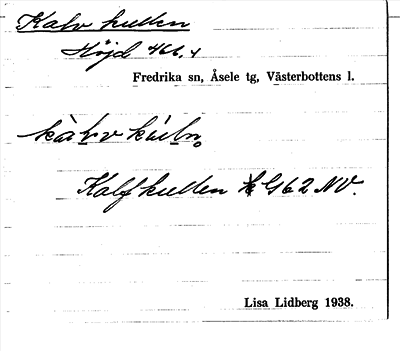 Kalvkullen
Höjd 466.4
Fredrika sn, Åsele tg, Västerbottens l.
Kalfkullen k G 62 NV.
Lisa Lidberg 1938.